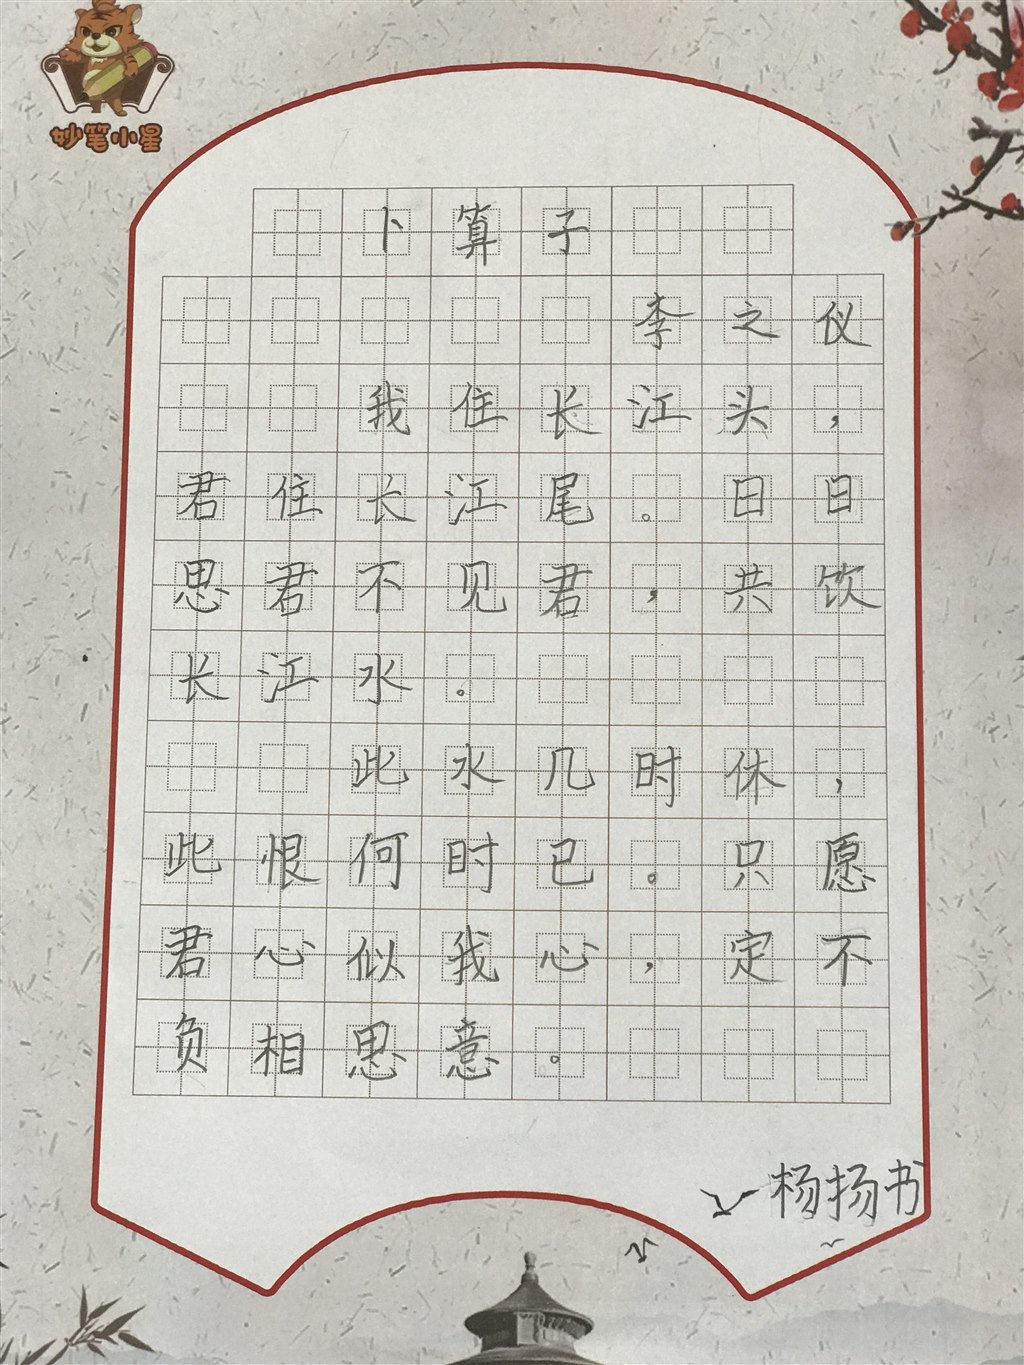 妙笔小星
卜算子
李之仪
我住长江头，
君住长江尾。日日
思君不见君，共饮
长江水。
此水几时休，
此恨何时已。只愿
君心似我心，定不
负相思意。
杨扬书